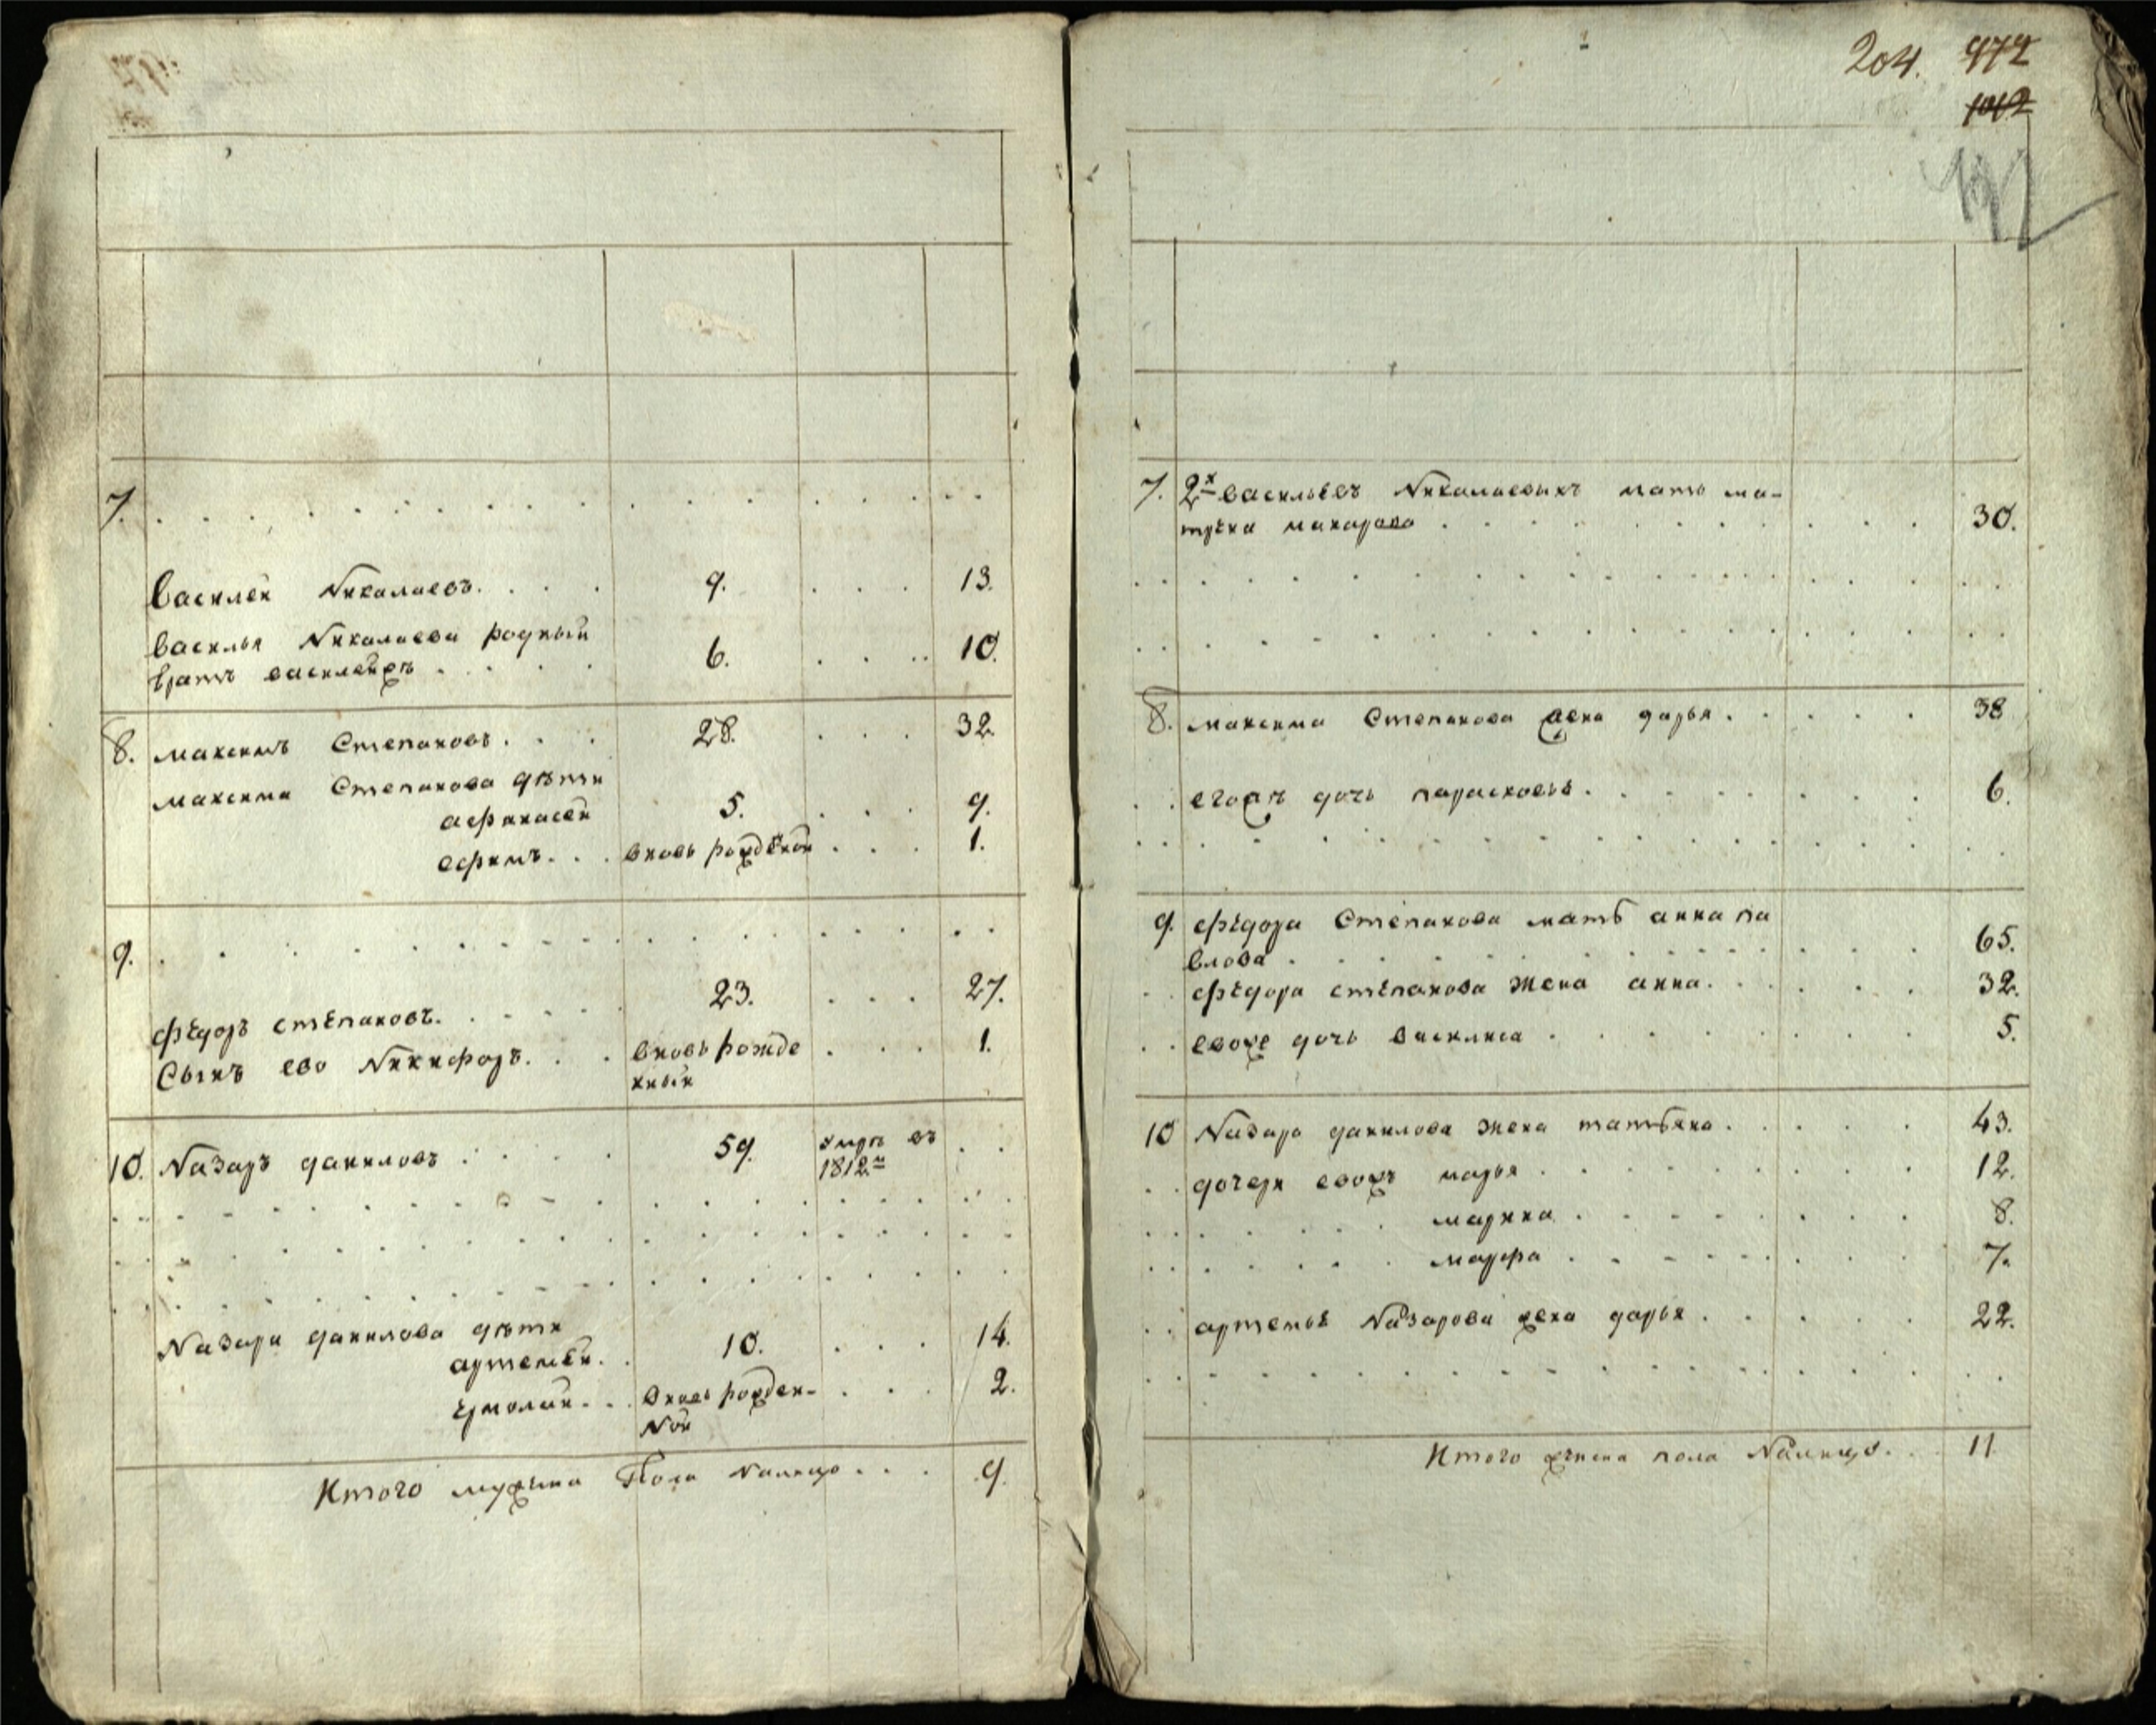 204. 472
1012
7.
Василей Николаевъ. 9. 13.
Василья Николаева родный
братъ василейжъ 6. 10.
8. максимъ Степановъ. 28. 32.
максима Степанова дѣти
афонасей 5. 9.
ефимъ. вновь рожденой 1.
9.
федоръ степановъ. 23. 27.
Сынъ ево Никифоръ. вновь рожде 1.
нный
10. Назаръ даниловъ 59. умръ въ
1812м
Назара данилова дѣти
артемей. 10. 14.
ермолай. вновь рожден- 2.
ной
Итого мужска Пола налицо 9.
7. 2х васильевъ Николаевыхъ мать ма-
трена макарова 30.
8. максима Степанова жена дарья. 38
егожъ дочь парасковья. 6.
9. федора Степанова мать анна па
влова 65.
федора степанова жена анна. 32.
евоже дочь василиса 5.
10 Назара данилова жена татьяна. 43.
дочери евожъ марья 12.
марина 8.
марфа 7.
артемья Назарова жена дарья 22.
Итого женска пола Налицо. 11